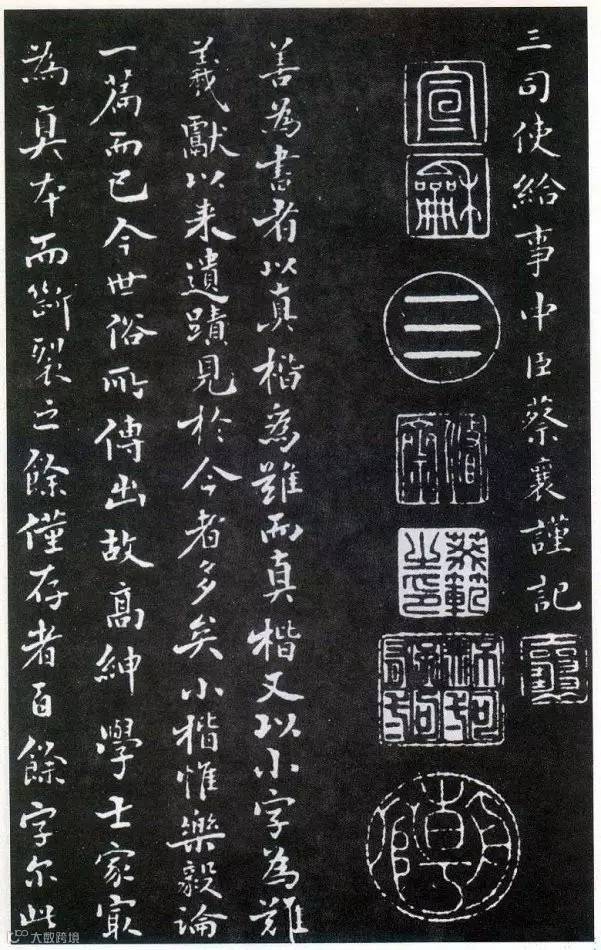 三司使給事中臣蔡襄謹記
宣
龢
善為書者以真楷為難而真楷又以小字為難
羲獻以来遺蹟見於今者多矣小楷惟樂毅論
一篇而已今世俗所傳出故高紳學士家冣
為真本而斷裂之餘僅存者百餘字尔此
大数跨境